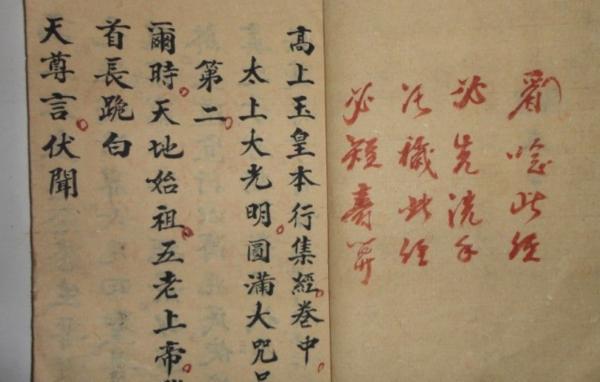 唸此經
必先洗手
穢此經
必短壽
高上玉皇本行集經卷中
太上大光明圓滿大咒品
第二
爾時天地始祖五老上帝
首長跪白
天尊言伏聞